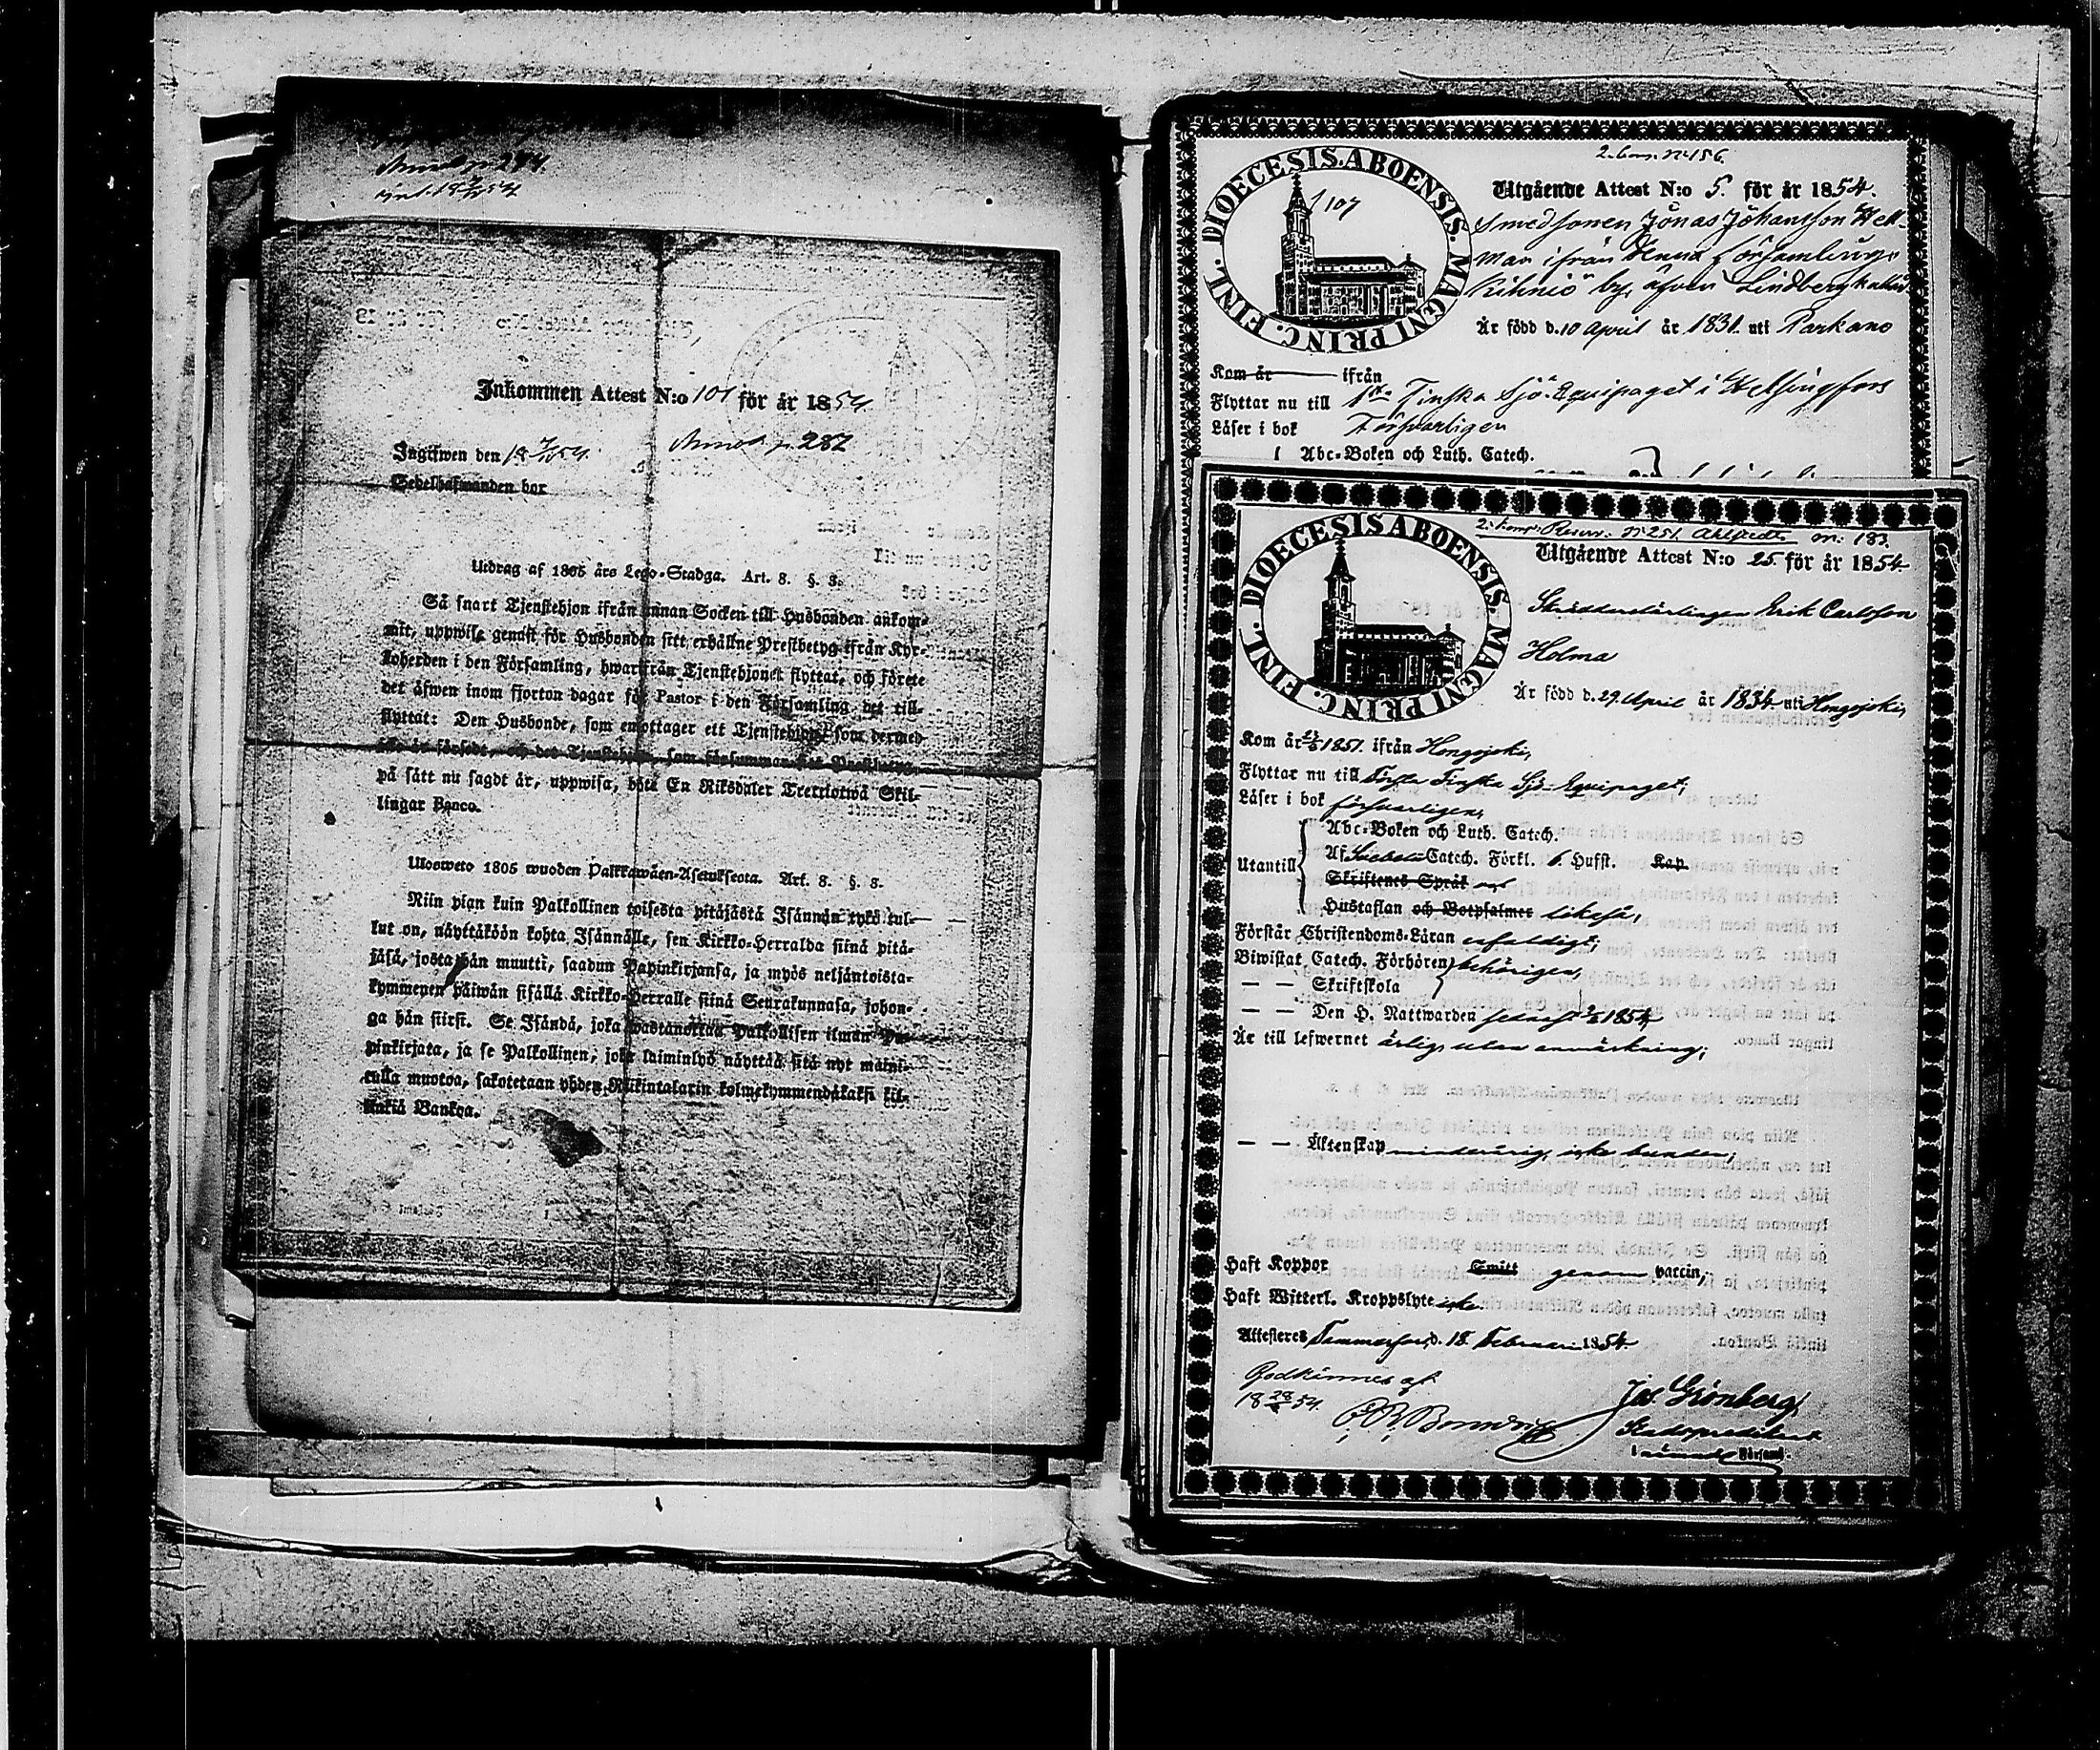 Annot. p. 284.
Inkommen Attest N:o 101 för år 1854
Ingifwen den
Annot. p. 282
Sedelhafwanden bor
Utdrag af 1805 års Lego-Stadga. Art. 8. §. 3.
Så snart Tjenstehjon ifrån annan Socken till Husbonden ankom-
mit, uppwise genast för Husbonden sitt erhållne Prestbetyg ifrån Kyr-
koherden i den Församling, hwarifrån Tjenstehjonet flyttat, och förete
det äfwen inom fjorton dagar för Pastor i den Församling det till-
flyttat: Den Husbonde, som emottager ett Tjenstehjon som dermed
icke är försedt, och det Tjenstehjon, som försummar det Prestbetyg,
på sätt nu sagdt är, uppwisa, böte En Riksdaler Trettiotwå Skil-
lingar Banco.
Ulosweto 1805 wuoden Palkkawäen-Asetuksesta. Art. 8. §. 3.
Niin pian kuin Palkollinen toisesta pitäjästä Isännän tykö tul-
lut on, näyttäköön kohta Isännälle, sen Kirkko-Herralda siinä pitä-
jäsä, josta hän muutti, saadun Papinkirjansa, ja myös neljäntoista-
kymmenen päiwän sisällä Kirkko-Herralle siinä Seurakunnasa, johon-
ga hän siirsi. Se Isändä, joka wastanottaa Palkollisen ilman Pa-
pinkirjata, ja se Palkollinen, joka laiminlyö näyttää sitä nyt maini-
tulla muotoa, sakotetaan yhden Riikintalarin kolmekymmendäkaksi kil-
linkiä Bankoa.
2. Com. N:o 156.
DIOECESIS ABOENSIS. MAGNI PRINC. FINL.
107
Utgående Attest N:o 5. för år 1854.
Smedsonen Jonas Johansson Hell-
man ifrån denna församlings
Kihniö by, äfven Lindberg kallad
Är född d. 10 April år 1831. uti Parkano
Kom år ifrån
Flyttar nu till 1sta Finska Sjö-Equipaget i Helsingfors
Läser i bok Försvarligen
Abc-Boken och Luth. Catech.
2. Comp: Reserv. N:o 251. Ahlstedt m: 183.
DIOECESIS ABOENSIS. MAGNI PRINC. FINL.
Utgående Attest N:o 25. för år 1854.
Skräddarelärlingen Erik Carlsson
Holma
Är född d. 29. April år 1834 uti Hongojoki,
Kom år 1851. ifrån Hongojoki,
Flyttar nu till Första Finska Sjö-Equipaget;
Läser i bok försvarligen,
Utantill
Abc-Boken och Luth. Catech.
Af Svebelii Catech. Förkl. 6. Hufst. Kap.
Skriftenes Språk
Hustaflan och Botpsalmer likeså,
Förstår Christendoms-Läran enfaldigt;
Biwistat Catech. Förhören behörigen,
— — Skriftskola
— — Den H. Nattwarden senast 1854
Är till lefwernet ärlig utan anmärkning;
— — Äktenskap minderårig, icke bunden;
Haft Koppor Smitt genom vaccin,
Haft Witterl. Kroppslyte icke.
Attesteres Tammerfors, d. 18. Februari 1854.
Godkännes af
18 54.
Jos. Grönberg,
Stadspredikant
i nämnde Församl.